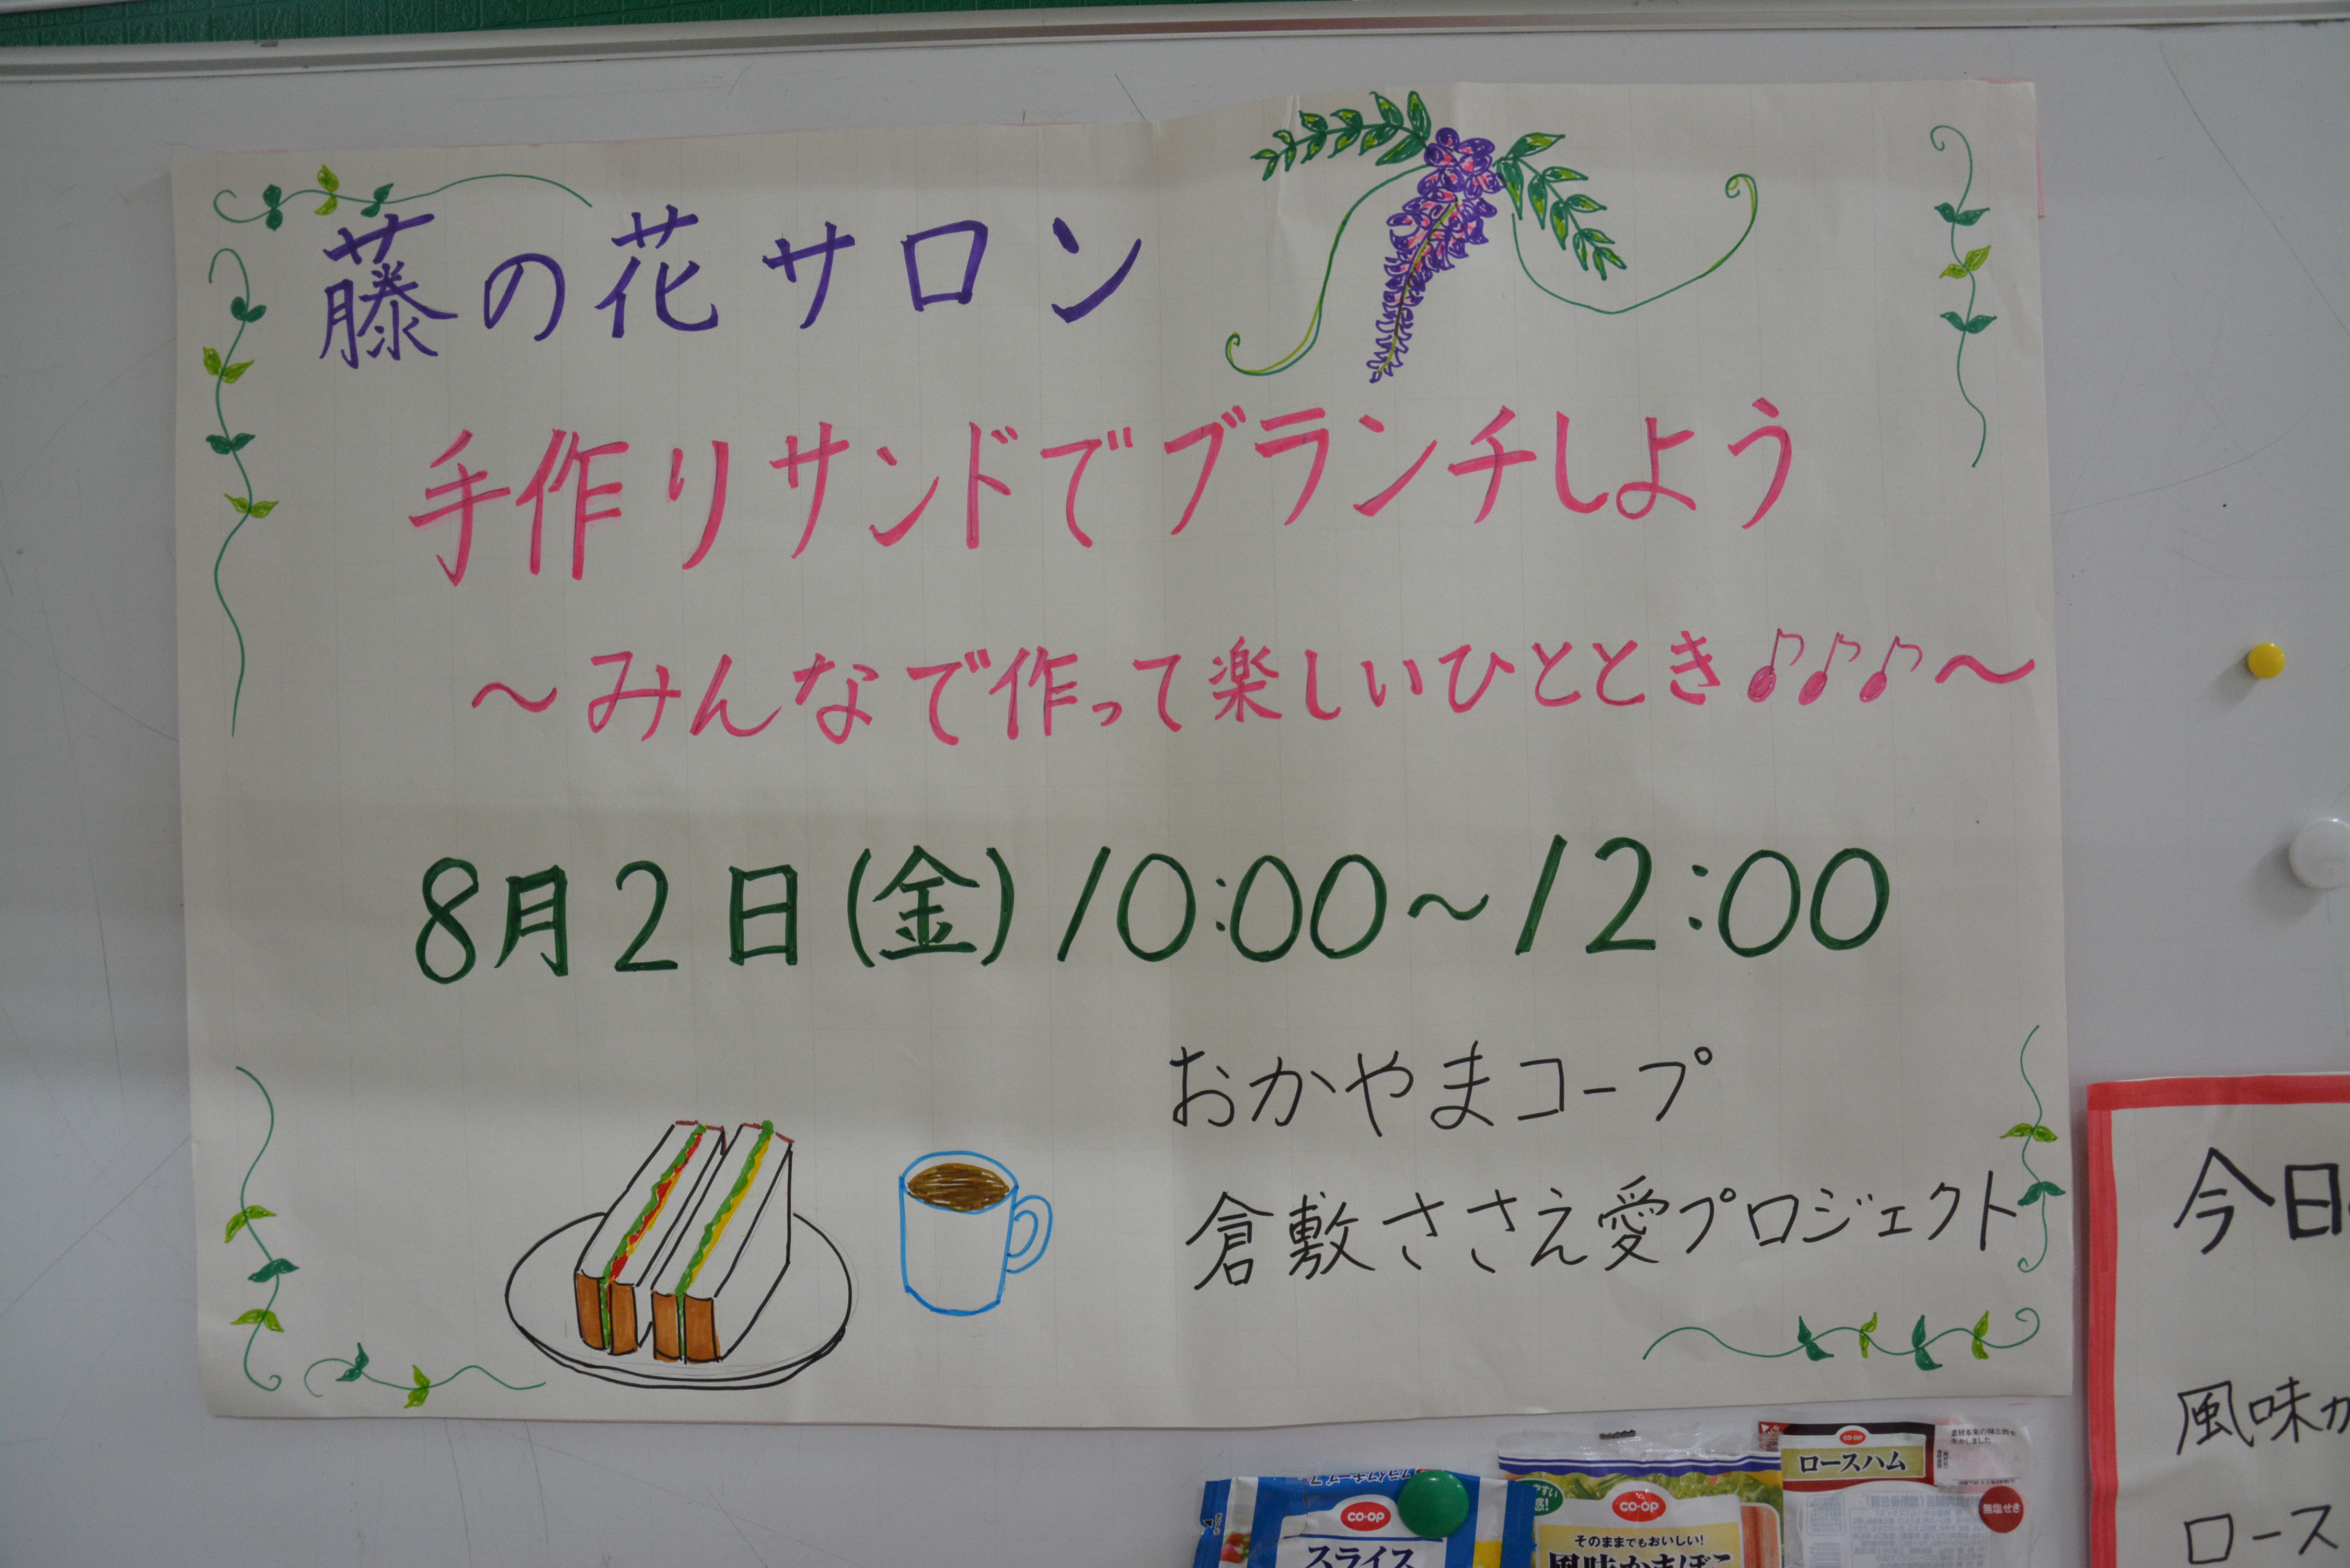 藤の花サロン
手作りサンドでブランチしよう
～みんなで作って楽しいひととき♪♪♪～
8月2日(金)10:00～12:00
おかやまコープ
倉敷ささえ愛プロジェクト
今日
風味か
ロース
CO·OP
スライス
CO·OP
そのままでもおいしい!
風味かまぼこ
CO·OP
ロースハム
無塩せき